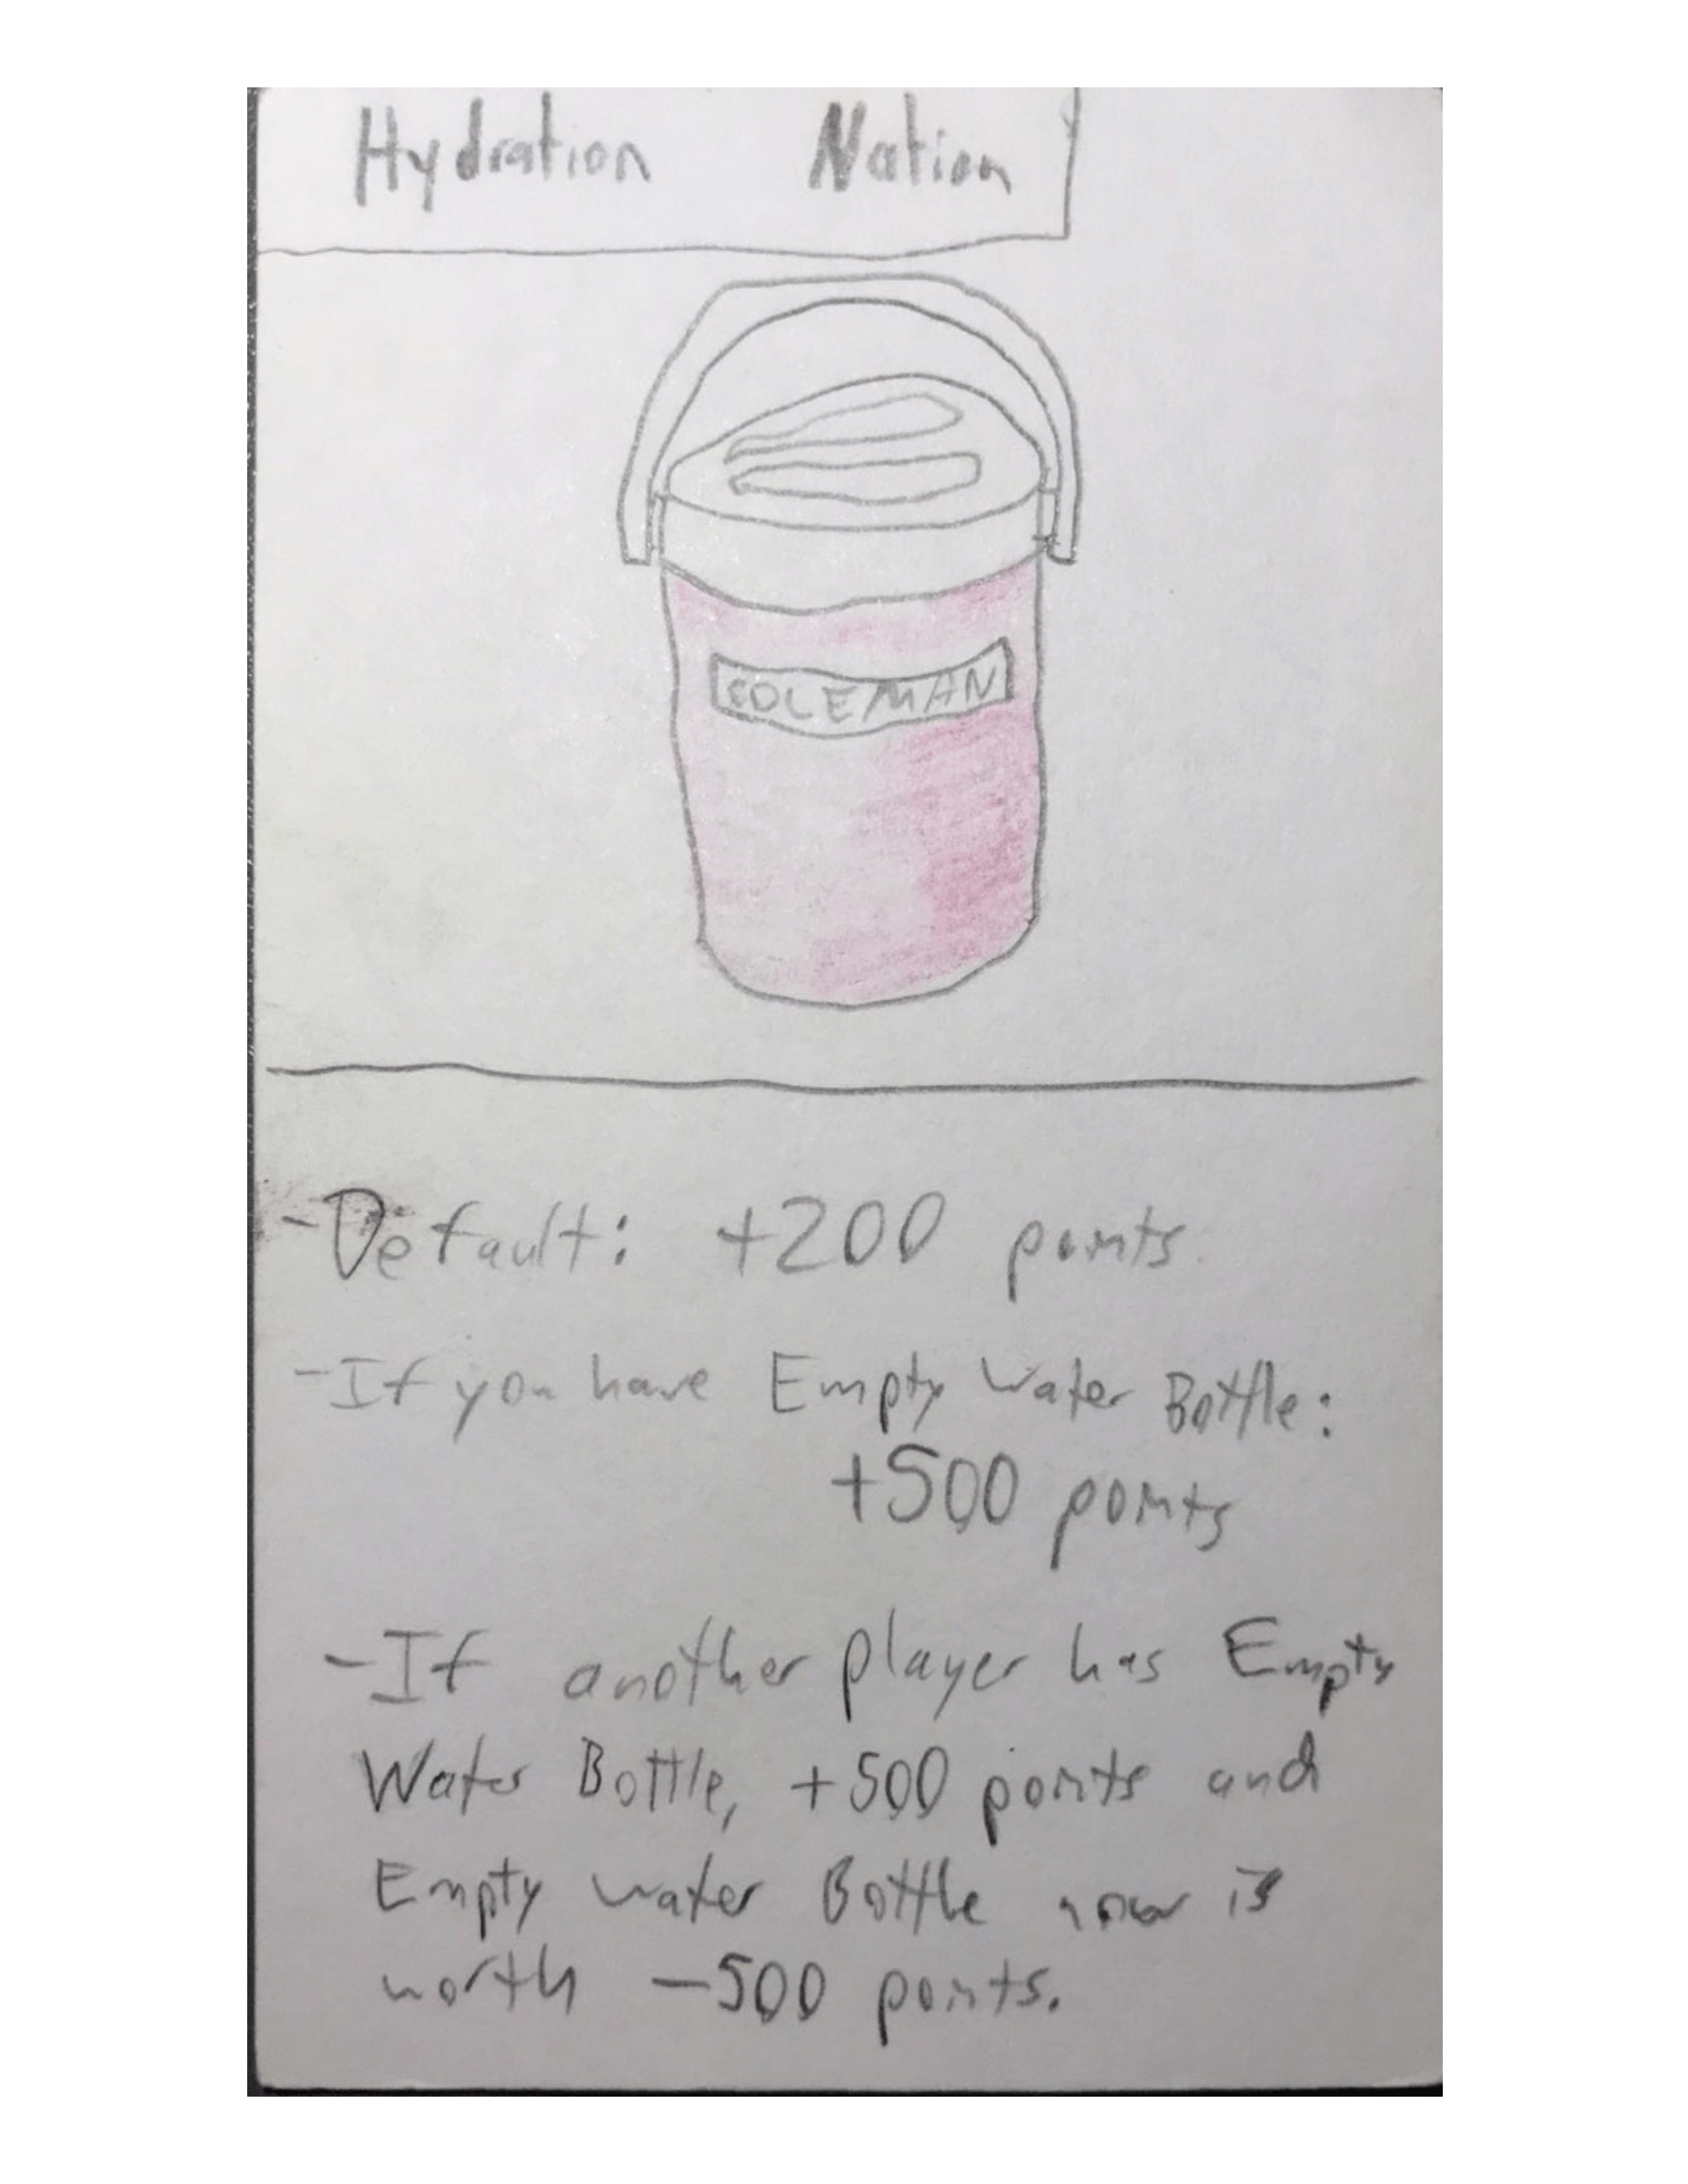 Hydration Nation
COLEMAN
-Default: +200 points
-If you have Empty Water Bottle:
+500 points
-If another player has Empty
Water Bottle, +500 points and
Empty water Bottle now is
worth -500 points.